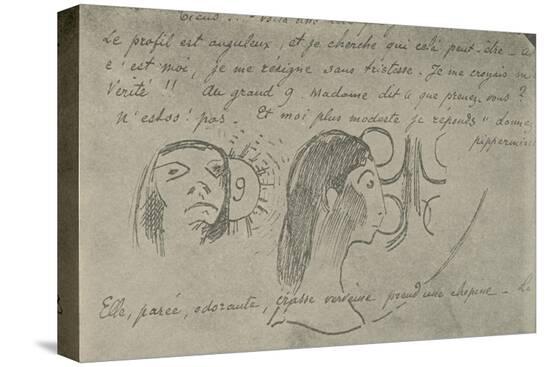 Tiens ... Voilà une
Le profil est anguleux, et je cherche qui celà peut-être - a
c'est moi, je me résigne sans tristesse. Je me croyais m
Vérité !! Au grand 9 Madame dit à que prenez vous ?
N'est pas - Et moi plus modeste je réponds " donne
pippermin
9
Elle, parée, odorante, grasse verveine prend une chopine - Le